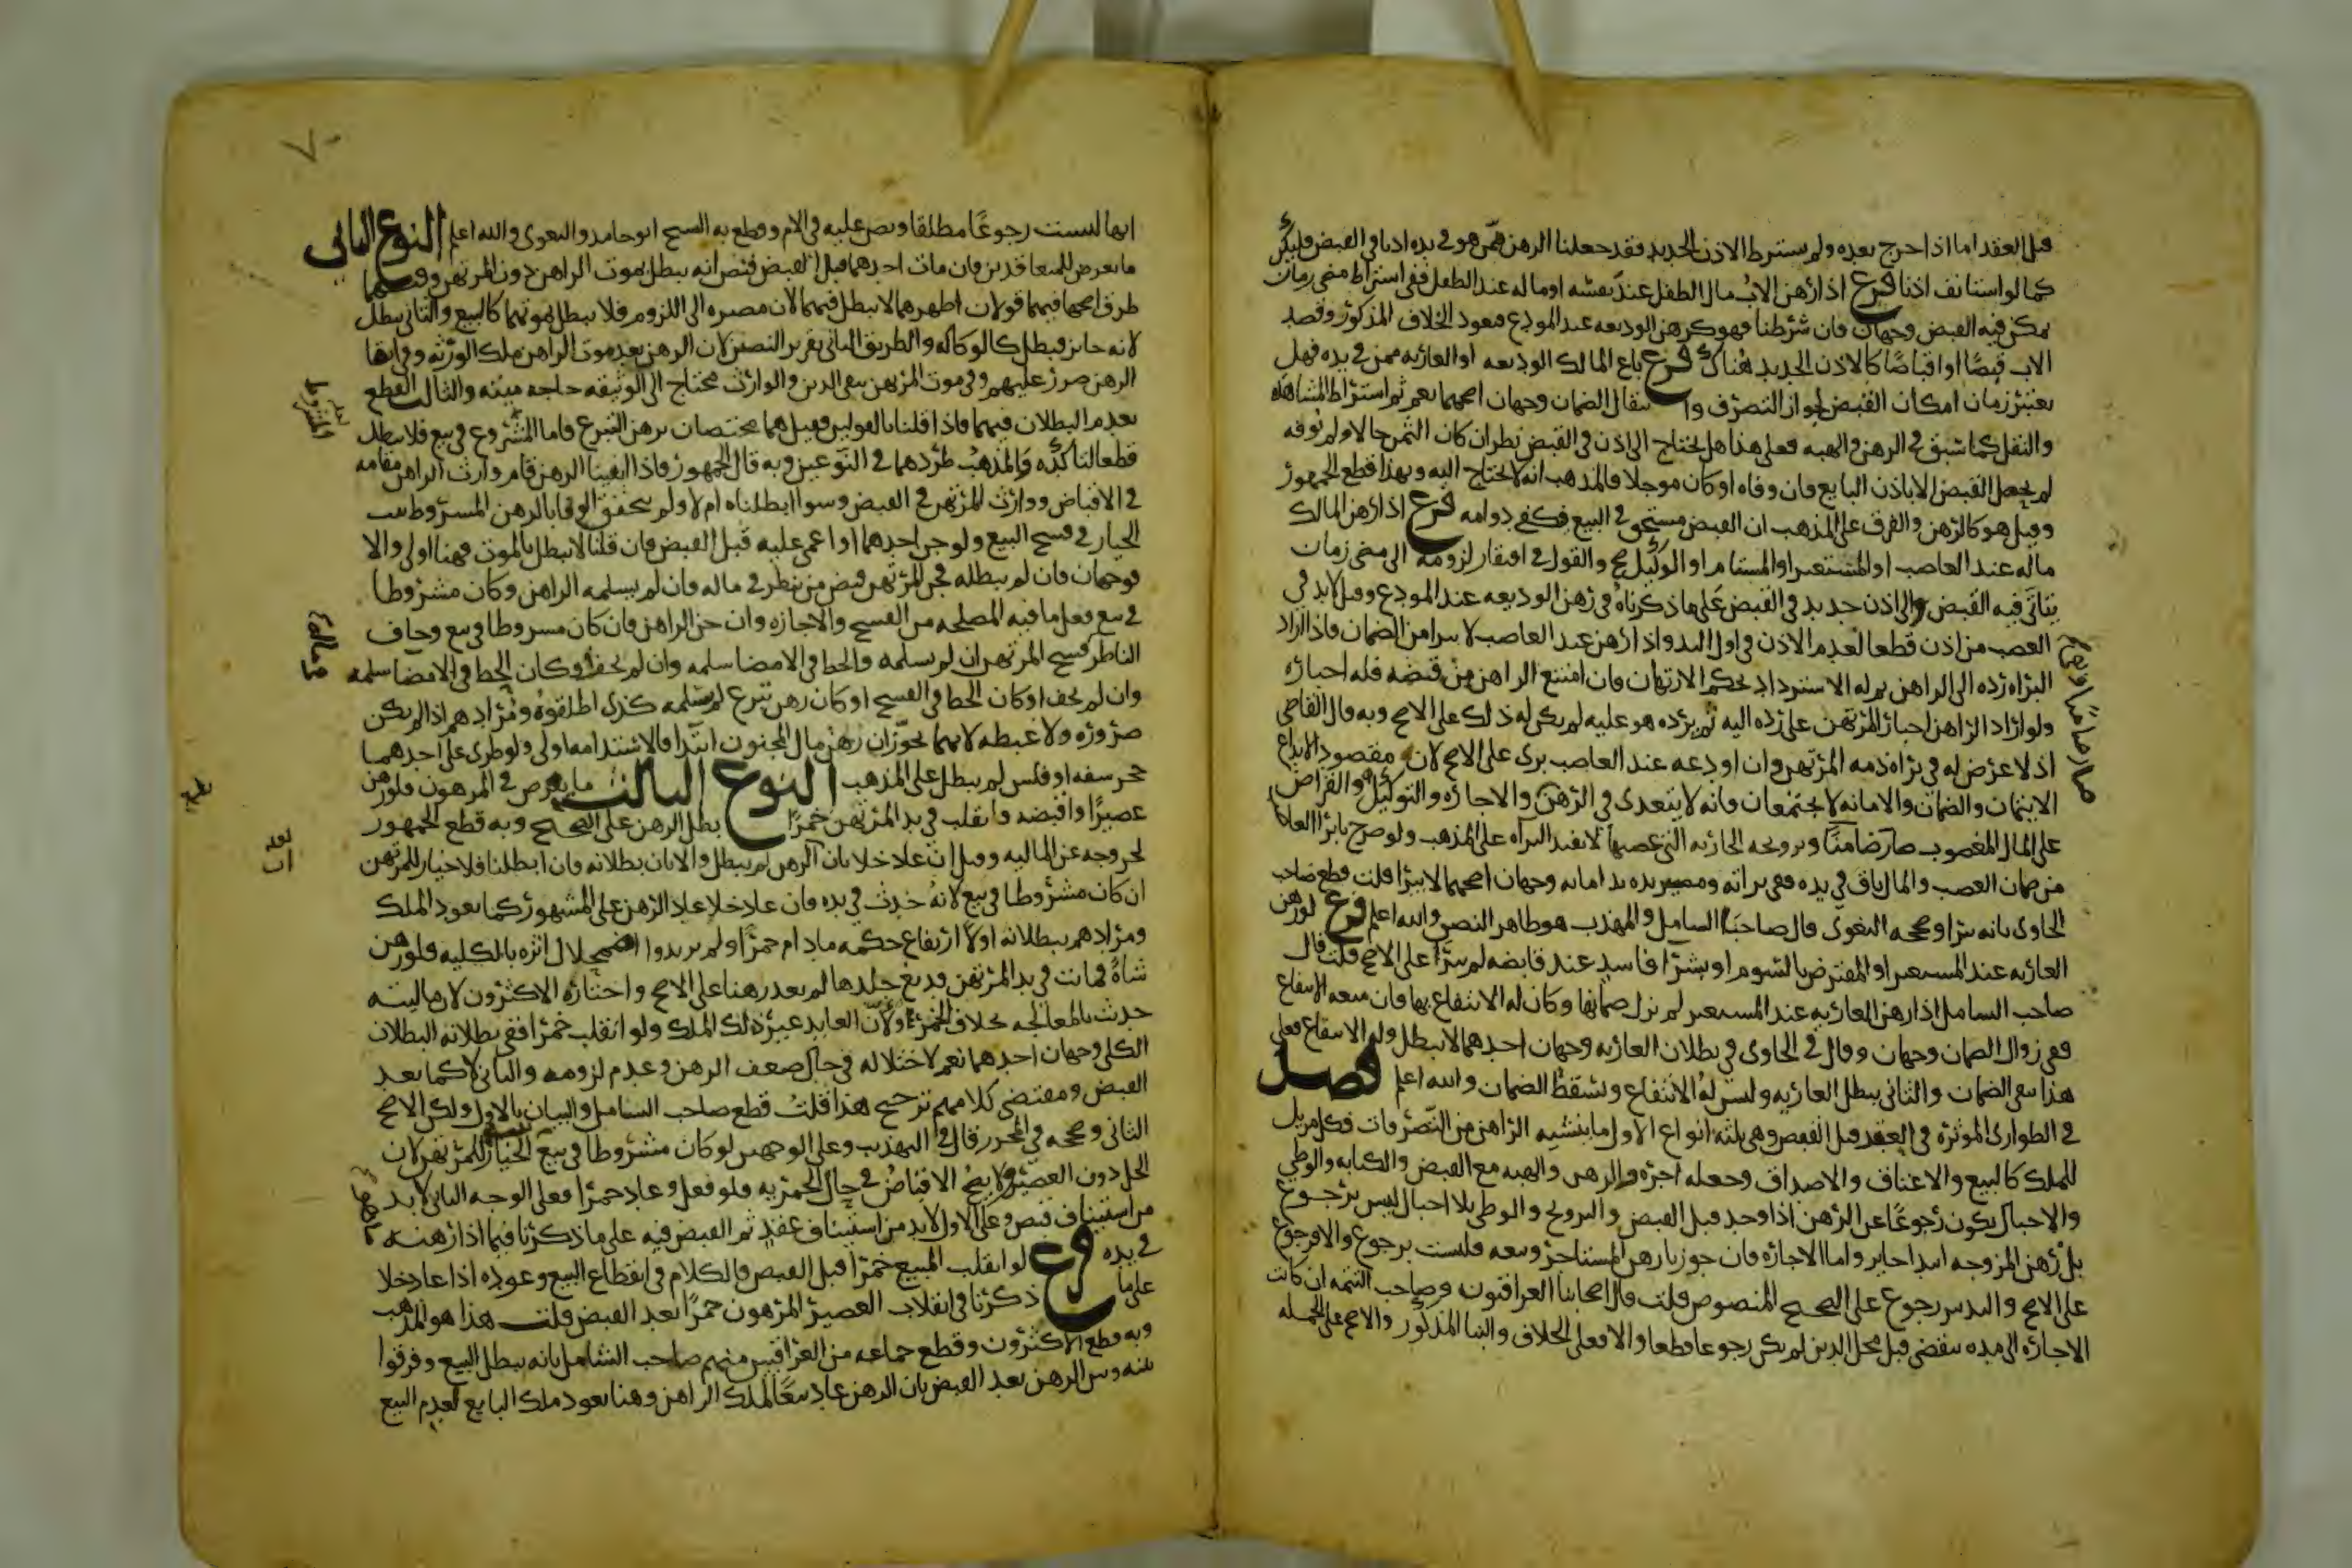 قبل العقد اما اذا اخرج بعده ولم يشترط الاذن الجديد فقد جعلنا الرهن ممن هو في يده اذنا في القبض فليكن
كما لو استانف اذنا فرع اذا رهن الاب مال الطفل عند نفسه او ماله عند الطفل ففي اشتراط مضي زمان
يمكن فيه القبض وجهان فان شرطنا فهو كرهن الوديعه عند المودع فيعود الخلاف المذكور وقصد
الاب قبضا او اقباضا كالاذن الجديد هناك فرع باع المالك الوديعه او العاريه ممن في يده فهل
يعتبر زمان امكان القبض لجواز التصرف وانتقال الضمان وجهان اصحهما نعم ثم اشتراط المشاهده
والنقل كما سبق في الرهن والهبه فعلى هذا هل يحتاج الى اذن في القبض نظر ان كان الثمن حالا ولم يوفه
لم يحصل القبض الا باذن البايع فان وفاه او كان موجلا فالمذهب انه لا يحتاج اليه وبهذا قطع الجمهور
وقيل هو كالرهن والفرق على المذهب ان القبض مستحق في البيع فكفى دوامه فرع اذا رهن المالك
ماله عند الغاصب او المستعير او المستام او الوكيل صح والقول في افتقار لزومه الى مضي زمان
يتاتى فيه القبض والى اذن جديد في القبض على ما ذكرناه في رهن الوديعه عند المودع وقيل لا بد في
الغصب من اذن قطعا لعدم الاذن في اول اليد واذا رهن عند الغاصب لا يبرا من الضمان فاذا اراد
البراه رده الى الراهن ثم له الاسترداد بحكم الارتهان فان امتنع الراهن من قبضه فله اجباره
ولو اراد الراهن اجبار المرتهن على رده اليه ثم يرده هو عليه لم يكن له ذلك على الاصح وبه قال القاضي
اذ لا غرض له في براه ذمه المرتهن وان اودعه عند الغاصب برى على الاصح لان مقصود الايداع
الايتمان والضمان والامانه لا يجتمعان فانه لا يتعدى في الرهن والاجاره والتوكيل والقراض
على المال المغصوب صار ضامنا وتزويجه الجاريه التي غصبها لا يفيد البراه على المذهب ولو صرح بابرا الغاصب
من ضمان الغصب والمال باق في يده ففي براته ومصير يده يد امانه وجهان اصحهما لا يبرا قلت قطع صاحب
الحاوى بانه يبرا وصححه البغوى قال صاحبا الشامل والمهذب هو ظاهر النص والله اعلم فرع لو رهن
العاريه عند المستعير او المقبوض بالسوم او بشرا فاسد عند قابضه لم يبرا على الاصح قلت قال
صاحب الشامل اذا رهن العاريه عند المستعير لم يزل ضمانها وكان له الانتفاع بها فان منعه الانتفاع
ففي زوال الضمان وجهان وقال في الحاوى في بطلان العاريه وجهان احدهما لا تبطل وله الانتفاع فعلى
هذا يبقى الضمان والثاني يبطل العاريه وليس له الانتفاع ويسقط الضمان والله اعلم فصل
في الطوارى الموثره في العقد قبل القبض وهي ثلثه انواع الاول ما ينشيه الراهن من التصرفات فكل مزيل
للملك كالبيع والاعتاق والاصداق وجعله اجره والرهن والهبه مع القبض والكتابه والوطي
والاحبال يكون رجوعا عن الرهن اذا وجد قبل القبض والتزويج والوطي بلا احبال ليس برجوع
بل رهن المزوجه ابتدا جايز واما الاجاره فان جوزنا رهن المستاجر وبيعه فليست برجوع والا فرجوع
على الاصح والتدبير رجوع على الصحيح المنصوص قلت قال اصحابنا العراقيون وصاحب التتمه ان كانت
الاجاره الى مده تنقضي قبل محل الدين لم يكن رجوعا قطعا والا فعلى الخلاف والبنا المذكور والاصح على الجمله
٧٠
انها ليست رجوعا مطلقا ونص عليه في الام وقطع به الشيخ ابو حامد والبغوى والله اعلم النوع الثاني
ما يعرض للمتعاقدين فان مات احدهما قبل القبض فنص انه يبطل بموت الراهن دون المرتهن وفيهما
طرق اصحها فيهما قولان اظهرهما لا يبطل فيهما لان مصيره الى اللزوم فلا يبطل بموتهما كالبيع والثاني يبطل
لانه جايز فبطل كالوكاله والطريق الثاني تقرير النصين لان الرهن بعد موت الراهن ملك الورثه وفي ابقا
الرهن ضرر عليهم وفي موت المرتهن يبقى الدين والوارث محتاج الى الوثيقه حاجه ميته والثالث القطع
بعدم البطلان فيهما فاذا قلنا بالقولين فقيل هما مختصان برهن التبرع فاما المشروع في بيع فلا يبطل
قطعا لتاكده والمذهب طردهما في النوعين وبه قال الجمهور فاذا ابقينا الرهن قام وارث الراهن مقامه
في الاقباض ووارث المرتهن في القبض وسوا ابطلناه ام لا ولم يتحقق الوفا بالرهن المشروط ثبت
الخيار في فسخ البيع ولو جن احدهما او اغمى عليه قبل القبض فان قلنا لا يبطل بالموت فهنا اولى والا
فوجهان فان لم نبطله فجن المرتهن قبض من ينظر في ماله فان لم يسلمه الراهن وكان مشروطا
في بيع فعل ما فيه المصلحه من الفسخ والاجازه وان جن الراهن فان كان مشروطا في بيع وخاف
الناظر فسخ المرتهن ان لم يسلمه والحظ في الامضا سلمه وان لم يخف او كان الحظ في الامضا سلمه
وان لم يخف او كان الحظ في الفسخ او كان رهن تبرع لم يسلمه كذى اطلقوه ومرادهم اذا لم يكن
ضروره ولا غبطه لانهما يجوزان رهن مال المجنون ابتدا فالاستدامه اولى ولو طرى على احدهما
حجر سفه او فلس لم يبطل على المذهب النوع الثالث ما يعرض في المرهون فلو رهن
عصيرا واقبضه وانقلب في يد المرتهن خمرا بطل الرهن على الصحيح وبه قطع الجمهور
لخروجه عن الماليه وقيل ان عاد خلا بان الرهن لم يبطل والا بان بطلانه فان ابطلنا فلا خيار للمرتهن
ان كان مشروطا في بيع لانه حدث في يده فان عاد خلا عاد الرهن على المشهور كما يعود الملك
ومرادهم ببطلانه اولا ارتفاع حكمه ما دام خمرا ولم يريدوا اضمحلال اثره بالكليه فلو رهن
شاة فماتت في يد المرتهن فدبغ جلدها لم يعد رهنا على الاصح واختاره الاكثرون لان ماليته
حدثت بالمعالجه بخلاف الخمر ولان العايد غير ذلك الملك ولو انقلب خمرا ففي بطلانه البطلان
الكلي وجهان احدهما نعم لاختلاله في حال ضعف الرهن وعدم لزومه والثاني لا كما بعد
القبض ومقتضى كلامهم ترجيح هذا قلت قطع صاحب الشامل والبيان بالاول ولكن الاصح
الثاني وصححه في المحرر قال في التهذيب وعلى الوجهين لو كان مشروطا في بيع ثبت الخيار للمرتهن لان
الخل دون العصير ولا يصح الاقباض في حال الخمريه فلو فعل وعاد خمرا فعلى الوجه الثاني لا بد
من استيناف قبض وعلى الاول لا بد من استيناف عقد ثم القبض فيه على ما ذكرنا فيما اذا رهنه
في يده فرع لو انقلب المبيع خمرا قبل القبض فالكلام في انقطاع البيع وعوده اذا عاد خلا
على ما ذكرنا في انقلاب العصير المرهون خمرا بعد القبض قلت هذا هو المذهب
وبه قطع الاكثرون وقطع جماعه من العراقيين منهم صاحب الشامل بانه يبطل البيع وفرقوا
بينه وبين الرهن بعد القبض بان الرهن عاد تبعا لملك الراهن وهنا يعود ملك البايع لعدم البيع